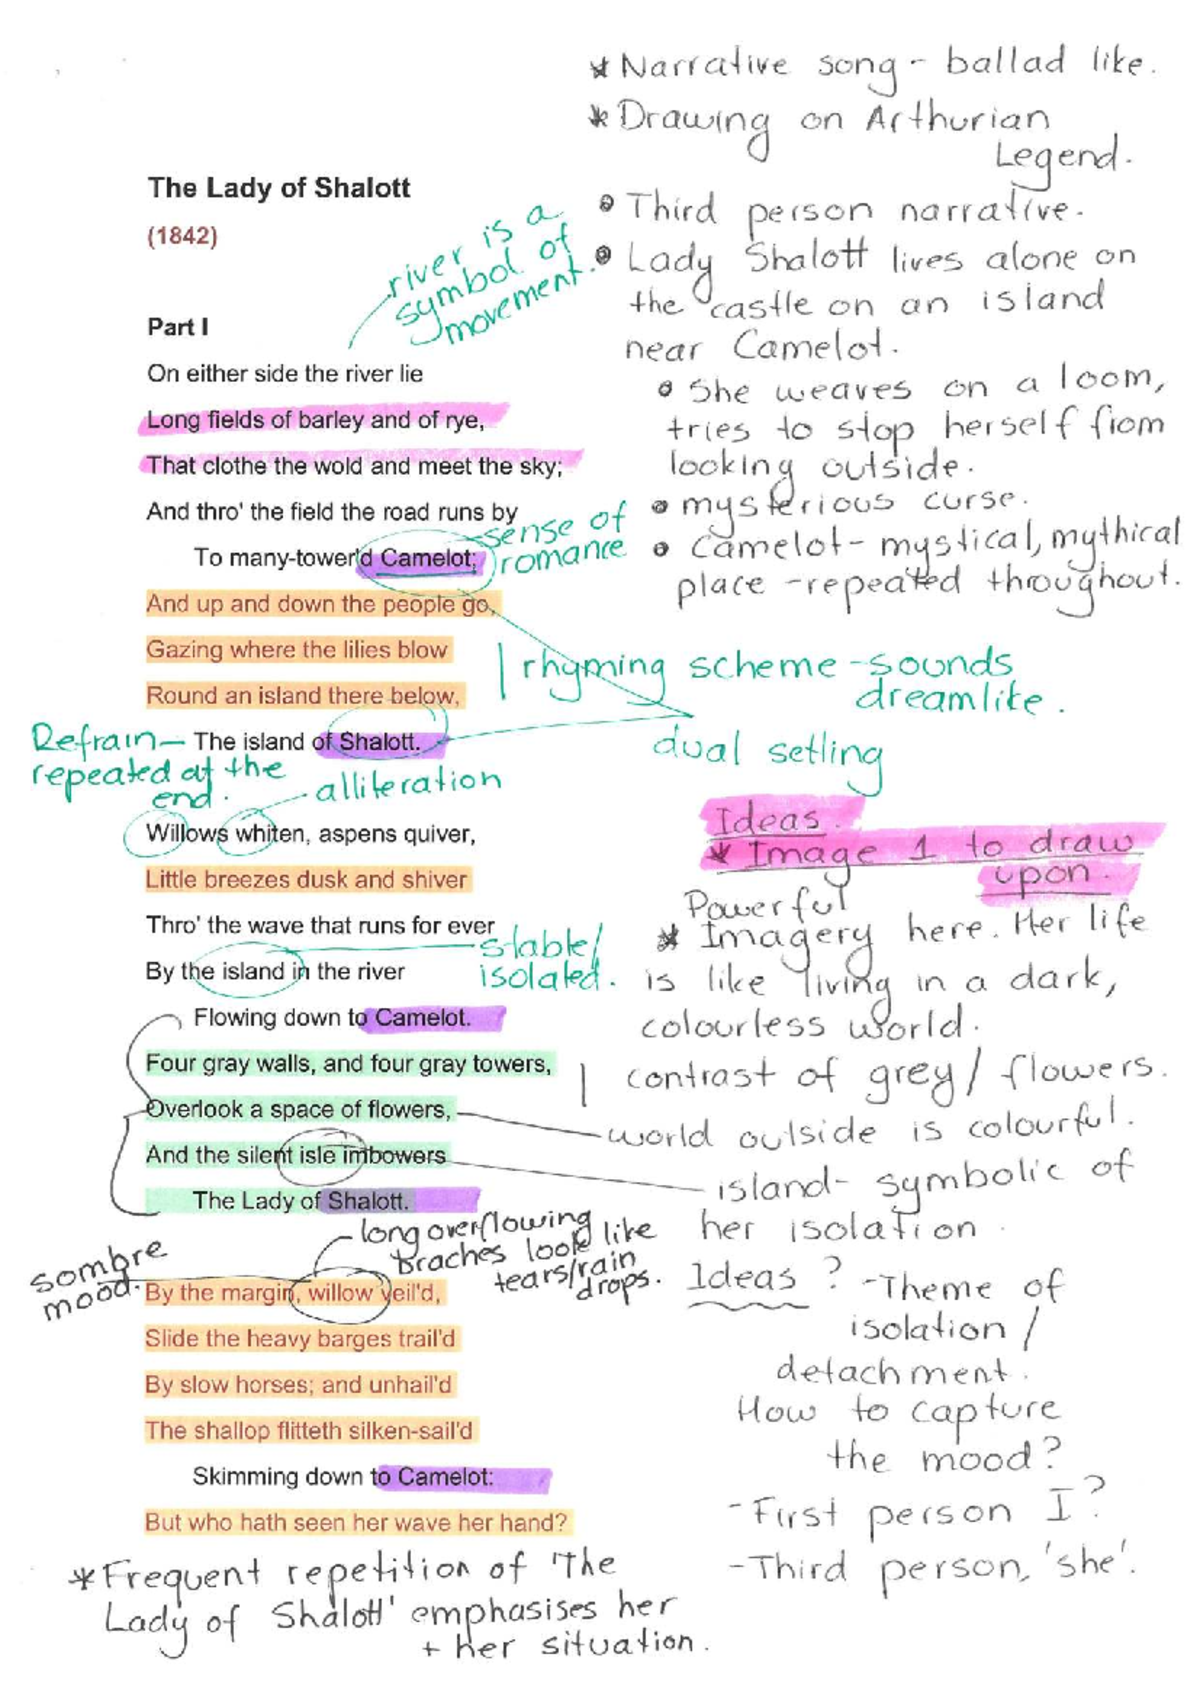 * Narrative song - ballad like.
* Drawing on Arthurian
Legend.
The Lady of Shalott
(1842)
river is a
symbol of
movement.
• Third person narrative.
• Lady Shalott lives alone on
the castle on an island
near Camelot.
• She weaves on a loom,
tries to stop herself from
looking outside.
• mysterious curse.
• Camelot - mystical, mythical
place - repeated throughout.
Part I
On either side the river lie
Long fields of barley and of rye,
That clothe the wold and meet the sky;
And thro' the field the road runs by
To many-tower'd Camelot;
sense of
romance
And up and down the people go,
Gazing where the lilies blow
Round an island there below,
rhyming scheme - sounds
dreamlike.
Refrain - The island of Shalott.
repeated at the
end.
dual setling
alliteration
Willows whiten, aspens quiver,
Little breezes dusk and shiver
Thro' the wave that runs for ever
By the island in the river
stable/
isolated.
Flowing down to Camelot.
Four gray walls, and four gray towers,
Overlook a space of flowers,
And the silent isle imbowers
The Lady of Shalott.
Ideas.
* Image 1 to draw
upon.
Powerful
* Imagery here. Her life
is like living in a dark,
colourless world.
contrast of grey/flowers.
world outside is colourful.
island - symbolic of
her isolation.
long overflowing
braches look like
tears/rain
drops.
sombre
mood.
By the margin, willow veil'd,
Slide the heavy barges trail'd
By slow horses; and unhail'd
The shallop flitteth silken-sail'd
Skimming down to Camelot:
But who hath seen her wave her hand?
Ideas? - Theme of
isolation/
detachment.
How to capture
the mood?
- First person I?
- Third person, 'she'.
* Frequent repetition of 'The
Lady of Shalott' emphasises her
+ her situation.